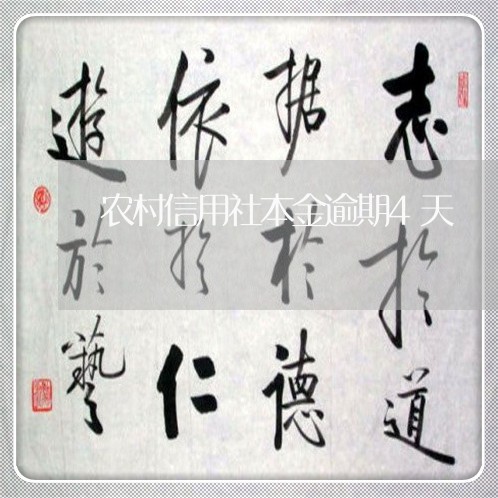 志於道
据於德
依於仁
遊於藝
农村信用社本金逾期4天